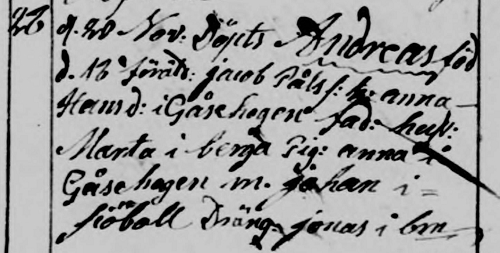 22 d. 20 Nov: Döpts Andreas föd
d. 18 föräld: jacob Påls s: h: anna
Hans d: i Gåsehogen fad: hust:
Marta i berga Pig: anna i
Gåsehogen m. johan i
siöboll Dräng: jonas i bm